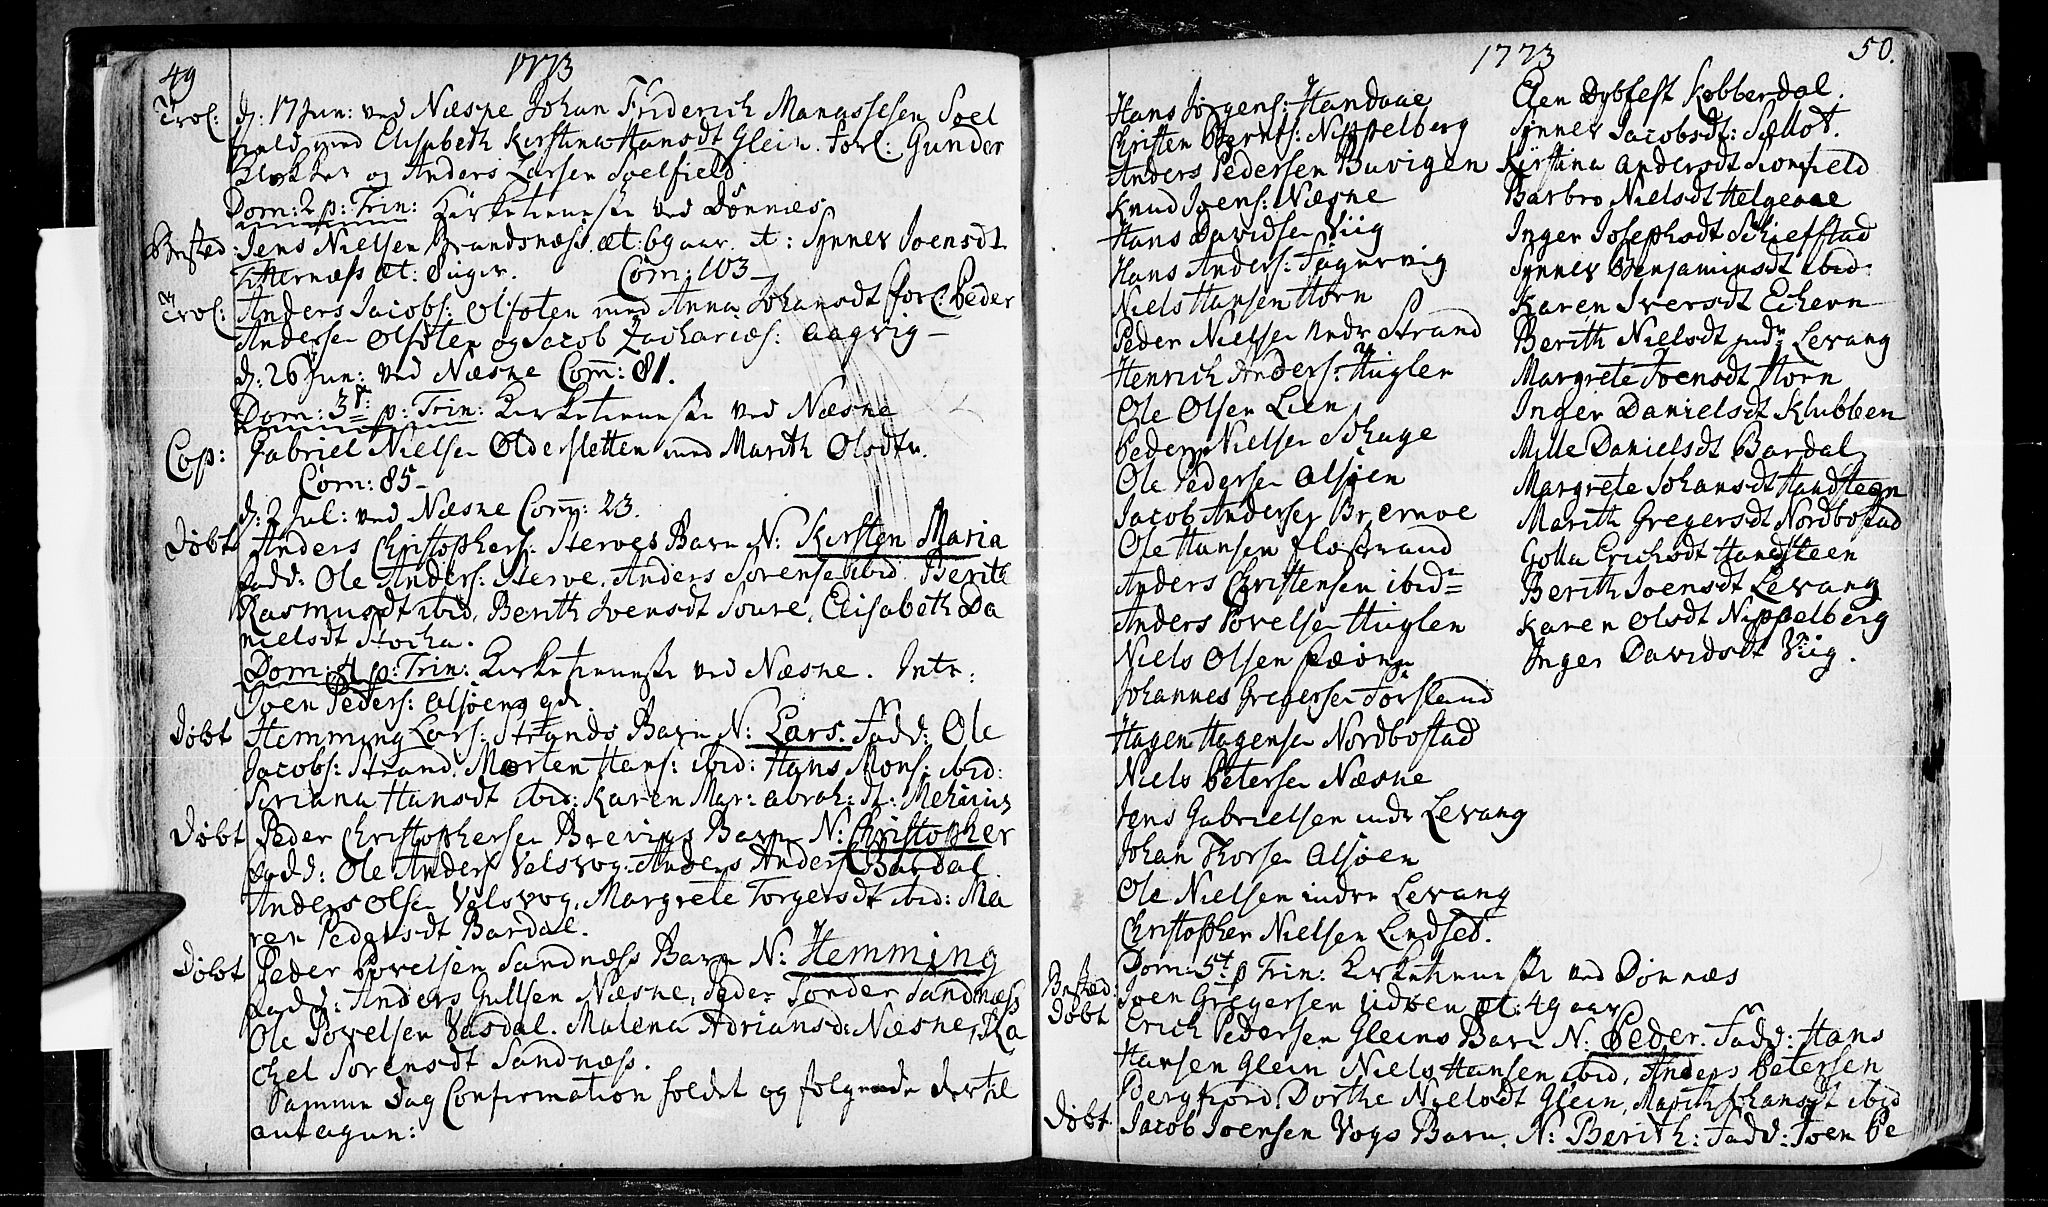 49
1773
Trol: d: 17 Jun: ved Næsne Johan Friderich Manassesen Soel
field med Elisabeth Kirstina Hansdt Glein. Forl: Gunder
Klokker og Anders Larsen Soelfield
Dom: 2 p: Trin: Kirketieneste ved Dønnæs
Bested: Jens Nielsen Brandsnæss æt: 69 aar. it: Synnev Joensdt
Titternæss æt: 8 uger. Com: 103
Trol: Anders Jacobs: Olfoten med Anna Johansdt forl: Peder
Andersen Olfoten og Jacob Zacharies: Aagvig
d: 26 Jun: ved Næsne Com: 81.
Dom: 3 p: Trin: Kirketieneste ved Næsne
Cop: Gabriel Nielsen Oldersletten med Marith Olsdtr.
Com: 85
d: 2 Jul: ved Næsne Com: 23.
Døbt Anders Christophers: Sterves Barn N: Kirsten Maria
Fadd: Ole Anders: Sterve, Anders Sørensen ibid Berith
Rasmusdt ibid, Berith Joensdt Soure, Elisabeth Da
nielsdt Stocha.
Dom: 4 p: Trin: Kirketieneste ved Næsne. Intr:
Joen Peders: Alsøens
Døbt Hemming Lars: Strands Barn N: Lars. Fadd: Ole
Jacobs: Strand. Morten Hans: ibid: Hans Mons: ibid:
Siriana Hansdt ibid: Karen Mar: Abrah: dt:
Døbt Peder Christophersen Brevigs Barn N: Christopher
Fadd: Ole Anders Valsvog. Anders Anders Bardal.
Anders Olsen Valsvog, Margrete Torgersdt ibid: Ma
ren Pedersdt Bardal.
Døbt Peder Povelsen Sandnæss Barn N: Hemming
Fadd: Anders Gullsen Næsne, Peder Tønder Sandnæss
Ole Povelsen Vasdal. Malena Adriansd: Næsne, Ra
chel Sørensdt Sandnæss.
Samme Dag Confirmation holdet og følgende dertil
antagen:
1773
50.
Hans Jørgens: Handaae
Christen Bernts: Nippelberg
Anders Pedersen Buvigen
Knud Joens: Næsne
Hans Davidsen Viig
Hans Anders: Fagervig
Niels Hansen Horn
Peder Nielsen Strand
Henrich Anders: Huglen
Ole Olsen Lien
Peder Nielsen Schage
Ole Pedersen Alsøen
Jacob Andersen Bremve
Ole Hansen Flostrand
Anders Christensen ibid
Anders Povelsen Huglen
Niels Olsen
Johannes Gregersen Forsland
Hagen Hagensen Nordbostad
Niels Petersen Næsne
Jens Gabrielsen indr Levang
Johan Thorsen Alsøen
Ole Nielsen indre Levang
Christopher Nielsen Lindset.
Elen Dybfest Kobberdal.
Synnev Jacobsdt: Sællot.
Kirstina Andersdt
Barbro Nielsdt Helgeaae
Inger Josephsdt Schiefstad
Synnev Benjaminsdt ibid:
Karen Iversdt Echern
Berith Nielsdt indr Levang
Margrete Joensdt Horn
Inger Danielsdt Klubben
Mille Danielsdt Bardal
Margrete Johansdt Handsteen
Marith Gregersdt Nordbostad
Golla Erichsdt Handsteen
Berith Joensdt Levang
Karen Olsdt Nippelberg
Inger Davidsdt Viig.
Dom: 5t p Trin: Kirketieneste ved Dønnæs
Bested: Joen Gregersen Udøen æt: 49 aar
Døbt Erich Pedersen Gleins Barn N: Peder. Fadd: Hans
Hansen Glein Niels Hansen ibid, Anders Petersen
Bergfiord. Dorthe Nielsdt Glein, Marith Johansdt ibid
Døbt Jacob Joensen Vogs Barn. N: Berith: Fadd: Joen Pe